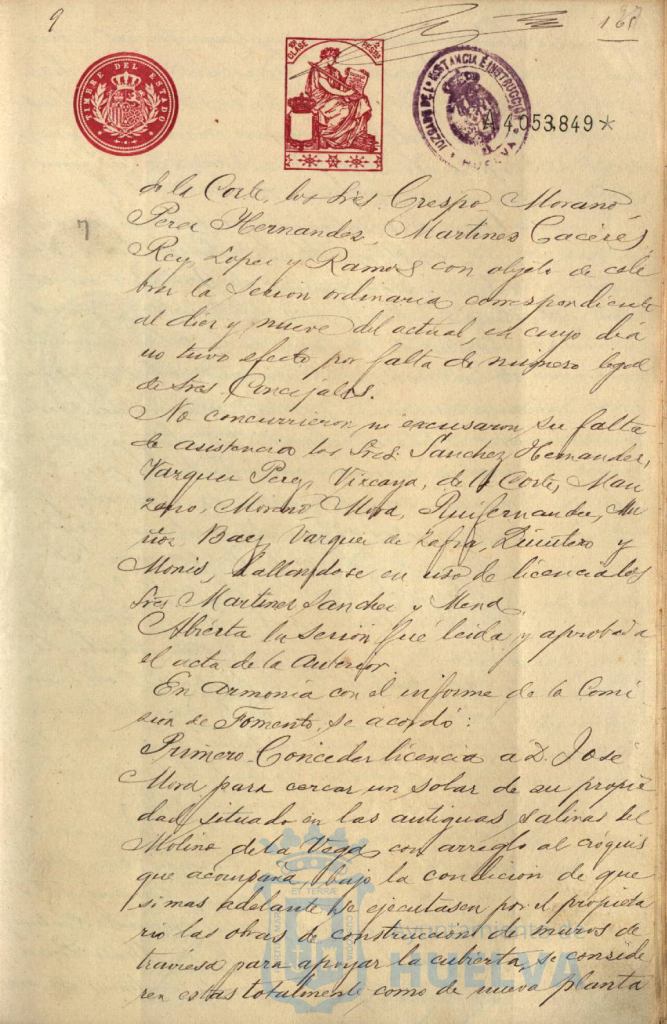 9
165
TIMBRE DEL ESTADO
10ª CLASE
2 PESETAS
JUZGADO DE 1ª INSTANCIA E INSTRUCCIÓN
HUELVA
A4.053.849*
de la Corte, los Sres. Crespo, Morano
Perez Hernandez, Martinez Caceres,
Rey, Lopez y Ramos con objeto de cele
brar la sesion ordinaria correspondiente
al diez y nueve del actual, en cuyo dia
no tuvo efecto por falta de número legal
de Sres. Concejales.
No concurrieron ni excusaron su falta
de asistencia los Sres. Sanchez Hernandez,
Vazquez Perez, Vizcaya, de la Corte, Man
zano, Morano Mora, Ruifernandez, Mu
ñoz, Baez, Vazquez de Zafra, Quintero y
Monis, hallandose en uso de licencia los
Sres Martinez Sanchez y Mena.
Abierta la sesion fué leida y aprobada
el acta de la anterior.
En armonia con el informe de la Comi
sión de Fomento, se acordó:
Primero. Conceder licencia a D. José
Mora para cercar un solar de su propie
dad situado en las antiguas salinas del
Molino de la Vega, con arreglo al cróquis
que acompaña, bajo la condicion de que
si mas adelante se ejecutasen por el propieta
rio las obras de construcción de muros de
traviesa para apoyar la cubierta, se conside
ren estas totalmente como de nueva planta
AYUNTAMIENTO DE
HUELVA